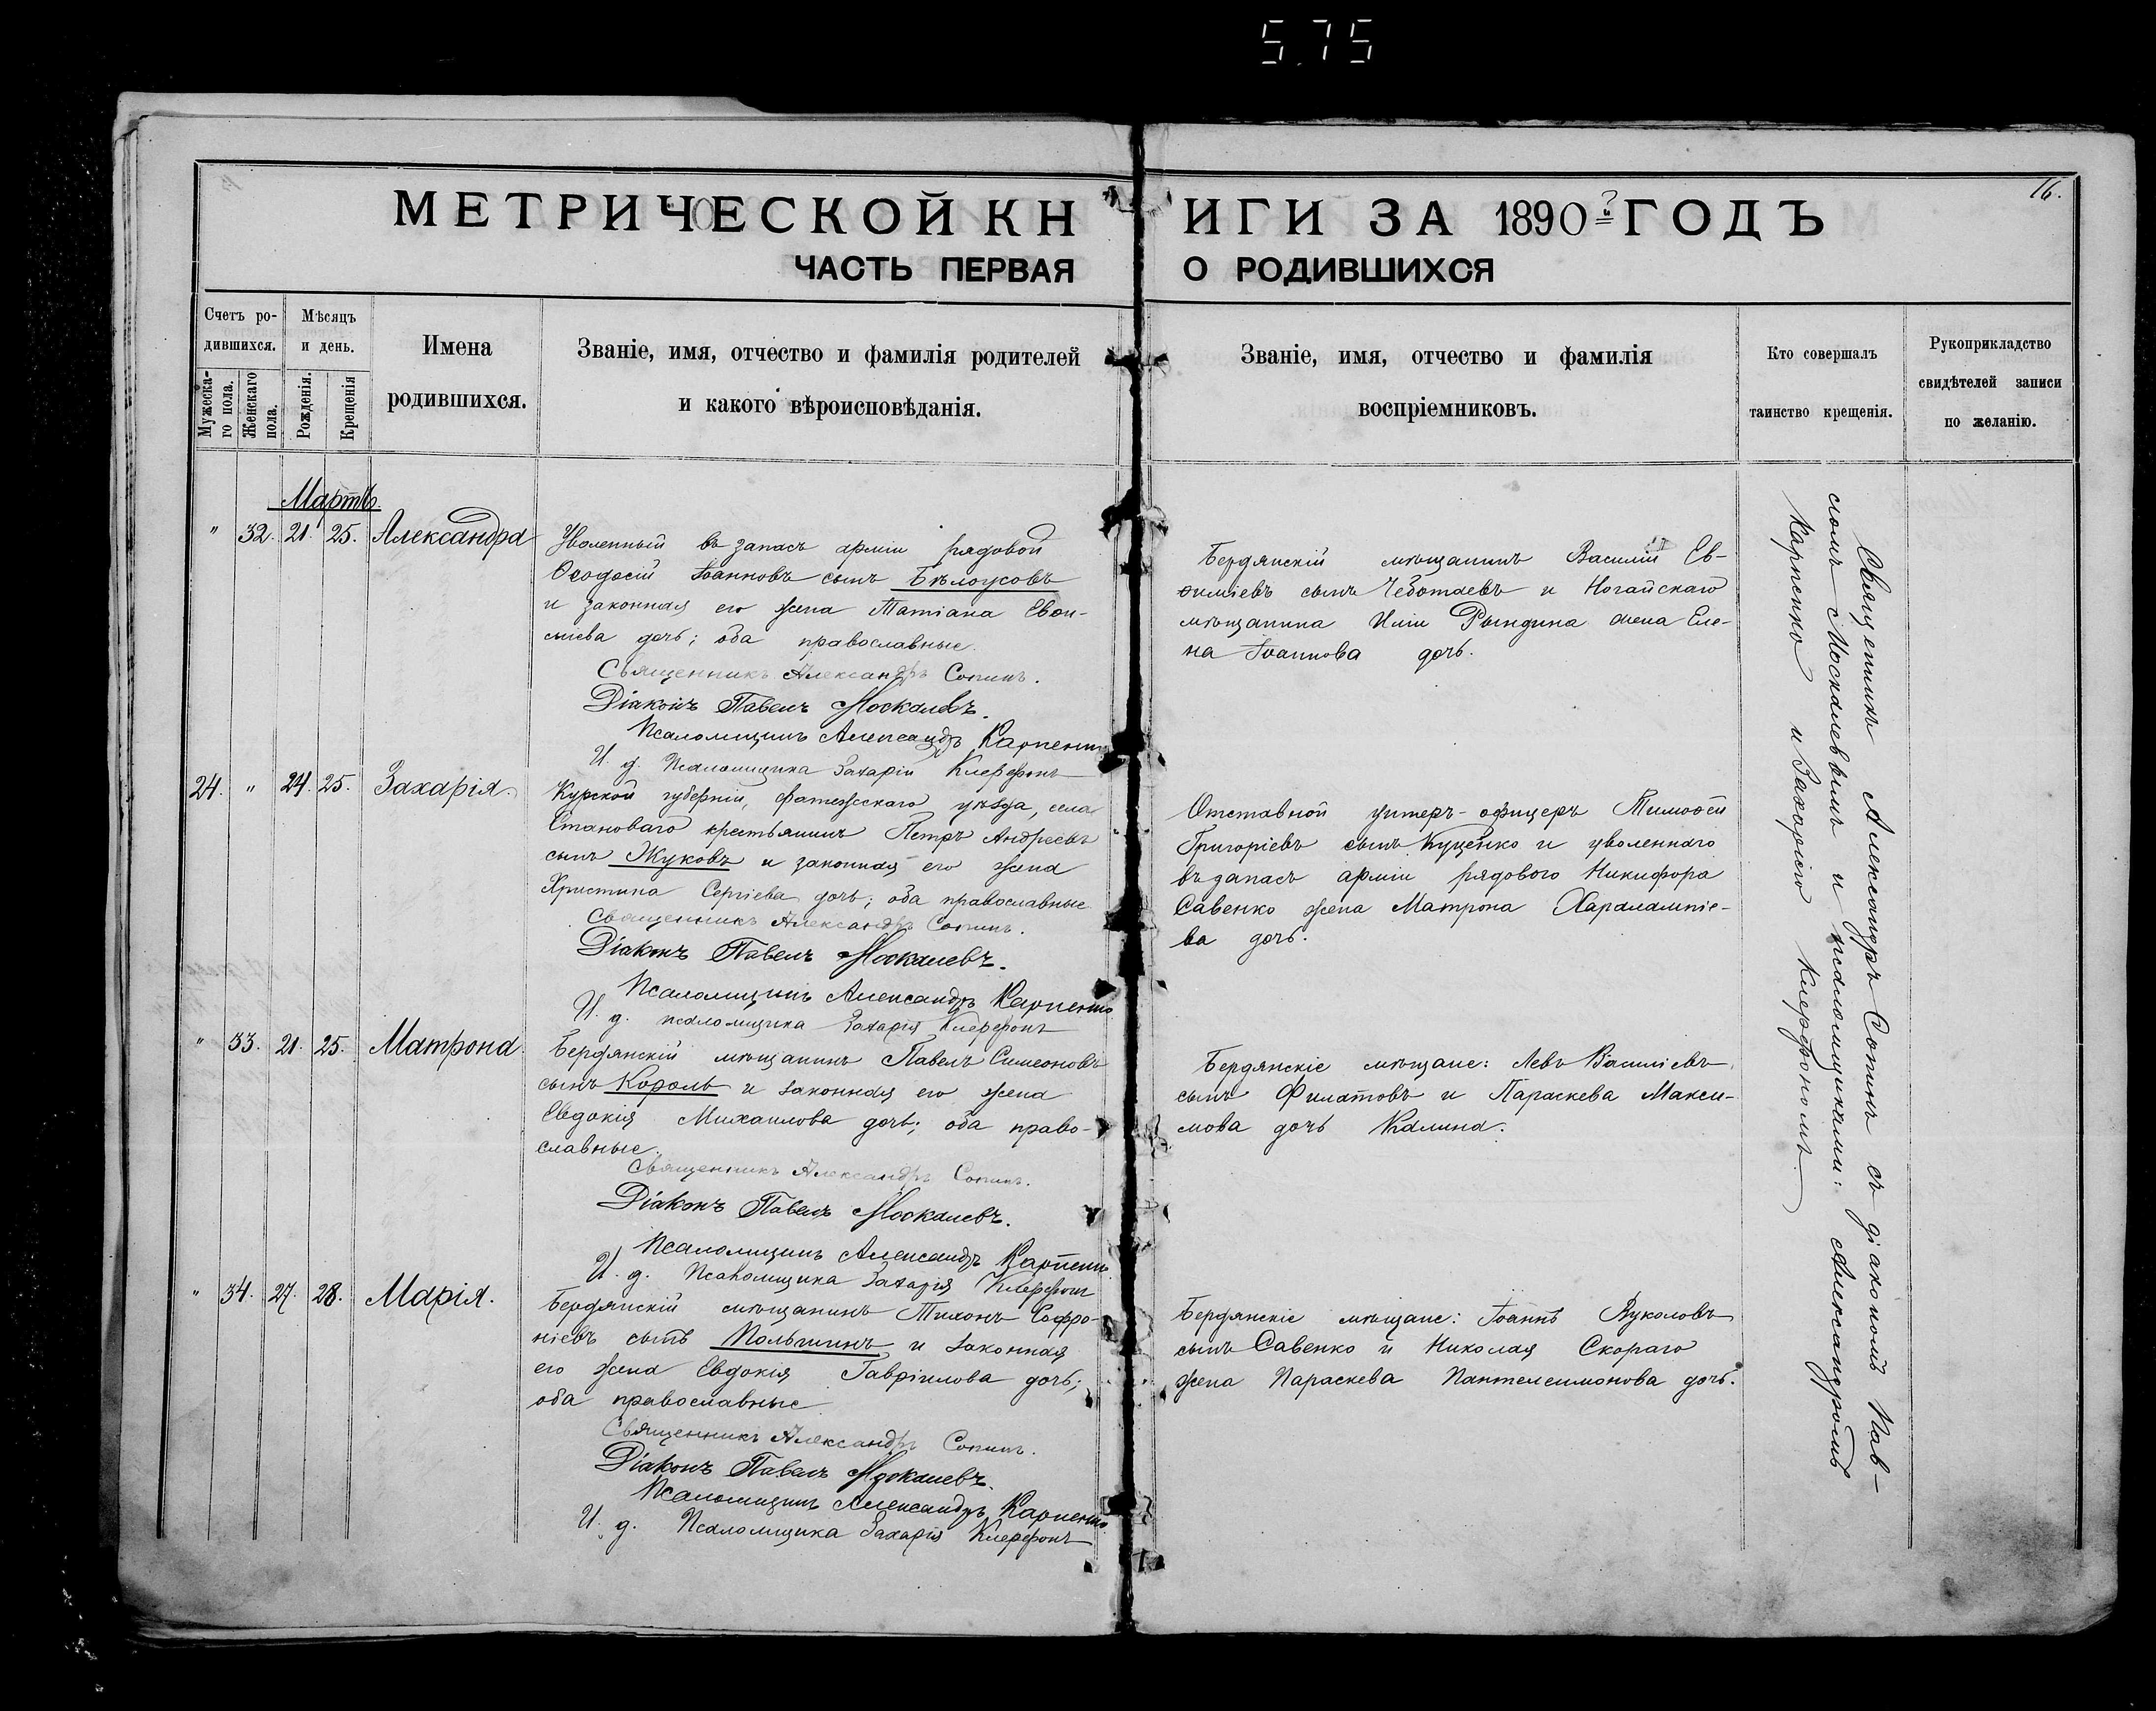 5.75
16.
МЕТРИЧЕСКОЙ КНИГИ ЗА 1890й ГОДЪ
ЧАСТЬ ПЕРВАЯ О РОДИВШИХСЯ
Счетъ ро-
дившихся.
Мужеска-
го пола.
Женскаго
пола.
Мѣсяцъ
и день.
Рожденія.
Крещенія
Имена
родившихся.
Званіе, имя, отчество и фамилія родителей
и какого вѣроисповѣданія.
Званіе, имя, отчество и фамилія
воспріемниковъ.
Кто совершалъ
таинство крещенія.
Рукоприкладство
свидѣтелей записи
по желанію.
Мартъ
" 32. 21. 25. Александра
Уволенный въ запасъ арміи рядовой
Ѳеодосій Іоанновъ сынъ Бѣлоусовъ
и законная его жена Татіана Евѳи-
міева дочь; оба православные.
Священникъ Александръ Сопинъ.
Діаконъ Павелъ Москалевъ.
Псаломщикъ Александръ Карпенко
И. д. Псаломщика Захарій Клерфонъ
Бердянскій мѣщанинъ Василій Ев-
ѳиміевъ сынъ Чеботаевъ и Ногайскаго
мѣщанина Иліи Рындина жена Еле-
на Іоаннова дочь.
24. " 24. 25. Захарія.
Курской губерніи, Фатежскаго уѣзда, села
Становаго крестьянинъ Петръ Андреевъ
сынъ Жуковъ и законная его жена
Христина Сергіева дочь; оба православные
Священникъ Александръ Сопинъ.
Діаконъ Павелъ Москалевъ.
Псаломщикъ Александръ Карпенко
И. д. псаломщика Захарія Клерфонъ
Отставной унтеръ-офицеръ Тимоѳей
Григоріевъ сынъ Куценко и уволеннаго
въ запасъ арміи рядового Никифора
Савенко жена Матрона Харалампіе-
ва дочь.
" 33. 21. 25. Матрона
Бердянскій мѣщанинъ Павелъ Симеоновъ
сынъ Король и законная его жена
Евдокія Михаилова дочь; оба право-
славные.
Священникъ Александръ Сопинъ.
Діаконъ Павелъ Москалевъ.
Псаломщикъ Александръ Карпенко
И. д. Псаломщика Захарія Клерфонъ
Бердянскіе мѣщане: Левъ Василіевъ
сынъ Филатовъ и Параскева Макси-
мова дочь Калина.
" 34. 27. 28. Марія.
Бердянскій мѣщанинъ Тихонъ Софро-
ніевъ сынъ Польшинъ и законная
его жена Евдокія Гавріилова дочь;
оба православные
Священникъ Александръ Сопинъ.
Діаконъ Павелъ Москалевъ.
Псаломщикъ Александръ Карпенко
И. д. Псаломщика Захарія Клерфонъ
Бердянскіе мѣщане: Іоаннъ Вуколовъ
сынъ Савенко и Николая Скораго
жена Параскева Пантелеимонова дочь.
Священникъ Александръ Сопинъ съ діакономъ Пав-
ломъ Москалевымъ и псаломщиками: Александромъ
Карпенко и Захаріею Клерфономъ.